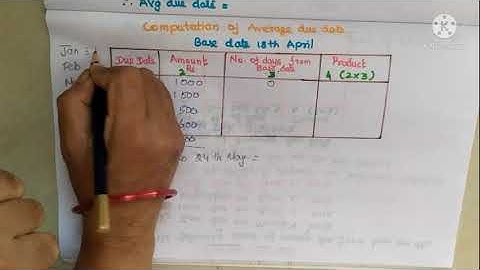 ∴ Avg due date =
Computation of Average due date
Base date 18th April
Jan 3
Feb
Due Date Amount Rs No. of days from Base date Product
2 3 4 (2x3)
1000 0
1500
500
24th May =